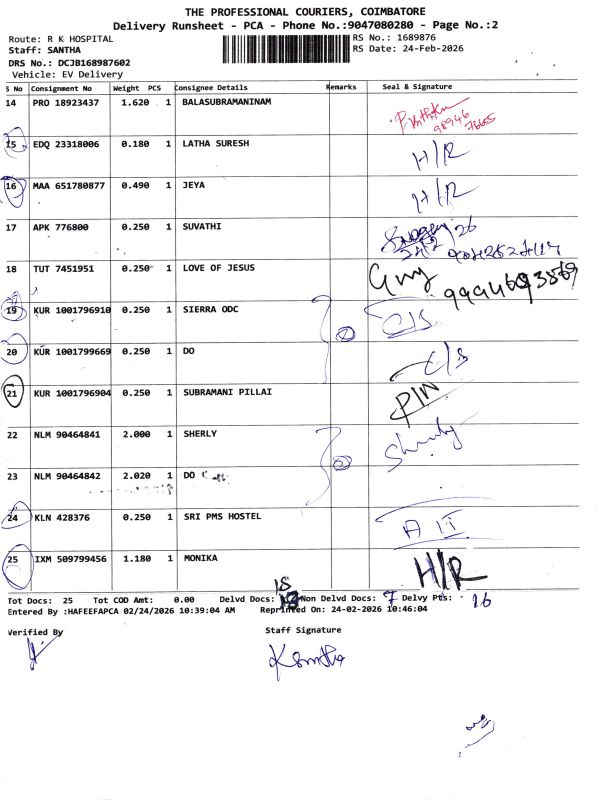 THE PROFESSIONAL COURIERS, COIMBATORE
Delivery Runsheet - PCA - Phone No.:9047080280 - Page No.:2
Route: R K HOSPITAL RS No.: 1689876
Staff: SANTHA RS Date: 24-Feb-2026
DRS No.: DCJB168987602
Vehicle: EV Delivery
S No Consignment No Weight PCS Consignee Details Remarks Seal & Signature
14 PRO 18923437 1.620 1 BALASUBRAMANINAM
98946
15 EDQ 23318006 0.180 1 LATHA SURESH H/R
16 MAA 651780877 0.490 1 JEYA H/R
17 APK 776800 0.250 1 SUVATHI
18 TUT 7451951 0.250 1 LOVE OF JESUS
19 KUR 1001796910 0.250 1 SIERRA ODC C/S
20 KUR 1001799669 0.250 1 DO C/S
21 KUR 1001796904 0.250 1 SUBRAMANI PILLAI P/N
22 NLM 90464841 2.000 1 SHERLY Sherly
23 NLM 90464842 2.020 1 DO
24 KLN 428376 0.250 1 SRI PMS HOSTEL
25 IXM 509799456 1.180 1 MONIKA H/R
18
Tot Docs: 25 Tot COD Amt: 0.00 Delvd Docs: Non Delvd Docs: 7 Delvy Pts: 16
Entered By :HAFEEFAPCA 02/24/2026 10:39:04 AM Reprinted On: 24-02-2026 10:46:04
Verified By Staff Signature